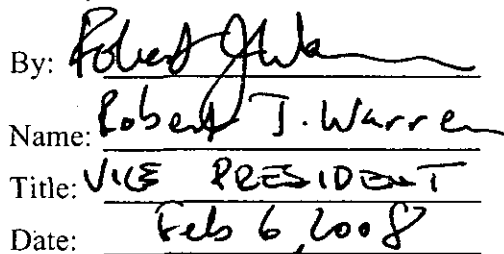 By: Robert J Warren
Name: Robert J. Warren
Title: VICE PRESIDENT
Date: Feb 6, 2008